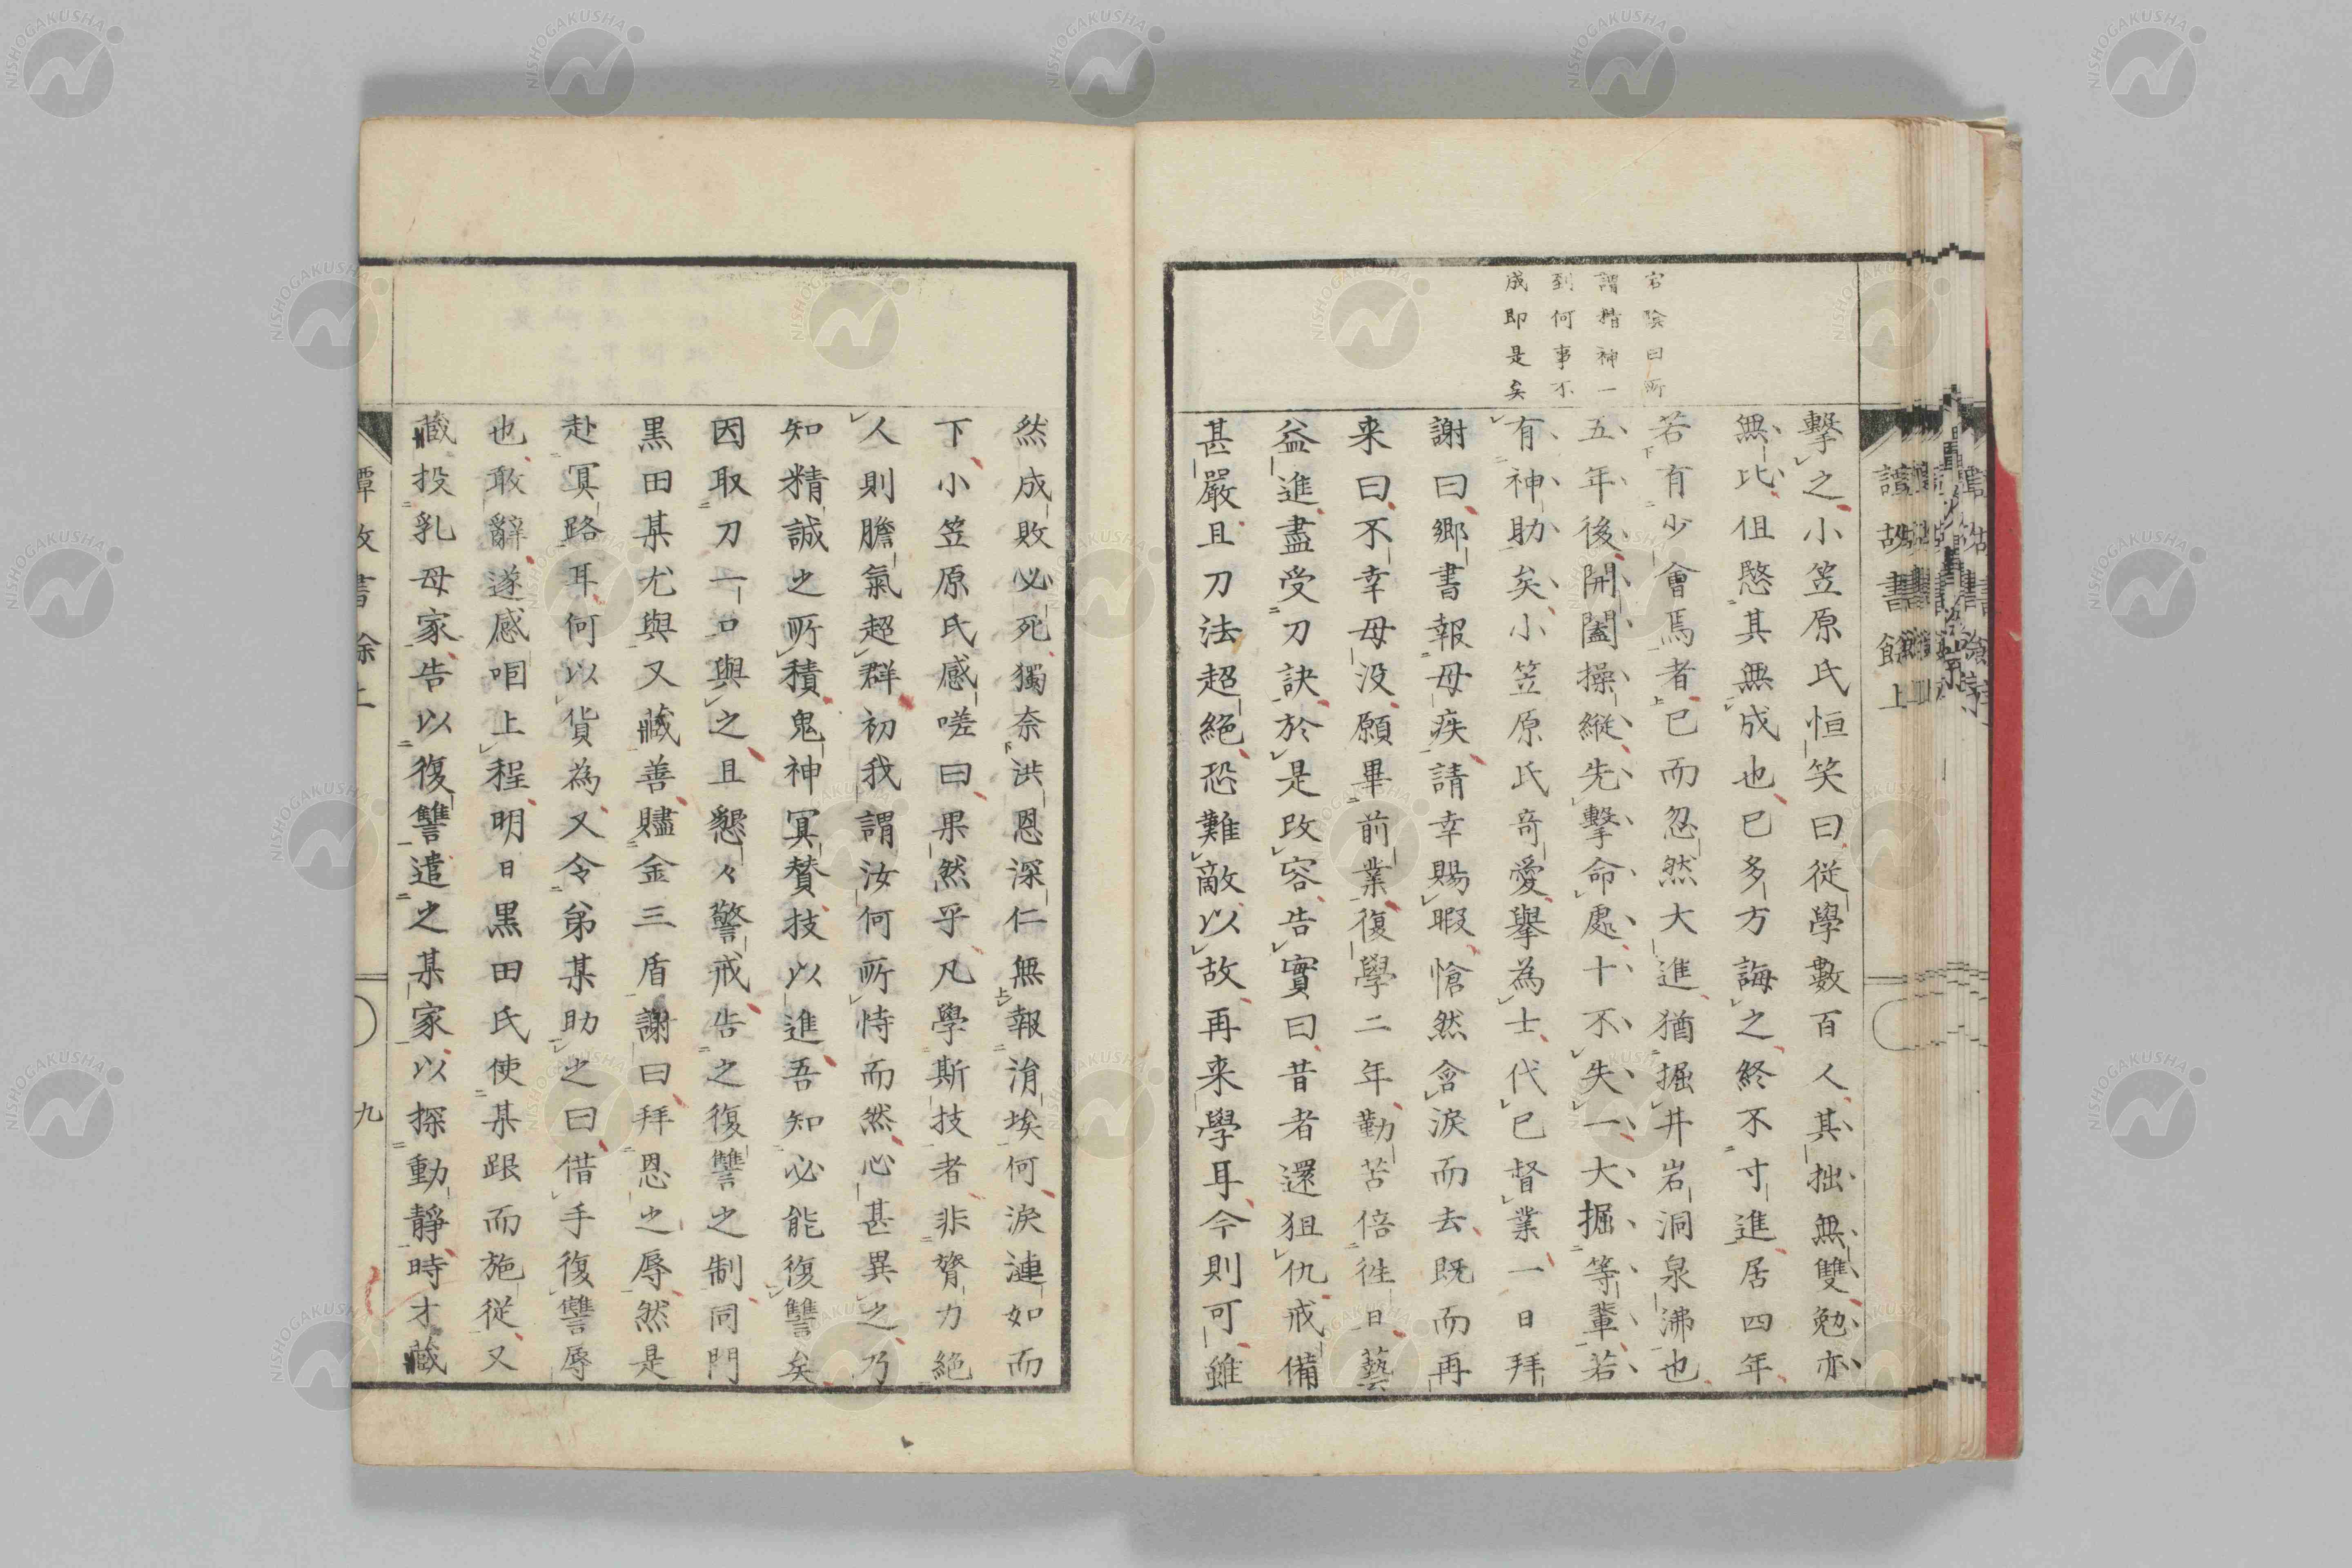 宕陰曰所
謂精神一
到何事不
成即是矣
擊之小笠原氏恒笑曰從學數百人其拙無雙勉亦
無比但愍其無成也已多方誨之終不寸進居四年
若有少會焉者已而忽然大進猶掘井岩洞泉沸也
五年後開闔操縱先擊命處十不失一大掘等輩若
有神助矣小笠原氏奇愛舉為士代已督業一日拜
謝曰鄉書報母疾請幸賜暇愴然含淚而去既而再
来曰不幸母没願畢前業復學二年勤苦倍徃日藝
益進盡受刀訣於是改容告實曰昔者還狙仇戒備
甚嚴且刀法超絕恐難敵以故再来學耳今則可雖
然成敗必死獨奈洪恩深仁無報涓埃何淚漣如而
下小笠原氏感嗟曰果然乎凡學斯技者非膂力絕
人則膽氣超群初我謂汝何所恃而然心甚異之乃
知精誠之所積鬼神冥贊技以進吾知必能復讐矣
因取刀一口與之且懇々警戒告之復讐之制同門
黒田某尤與又藏善贐金三盾謝曰拜恩之辱然是
赴冥路耳何以貨為又令弟某助之曰借手復讐辱
也敢辭遂感咽上程明日黒田氏使某跟而施從又
藏投乳母家告以復讐遣之某家以探動靜時才藏
譚故書餘上
九